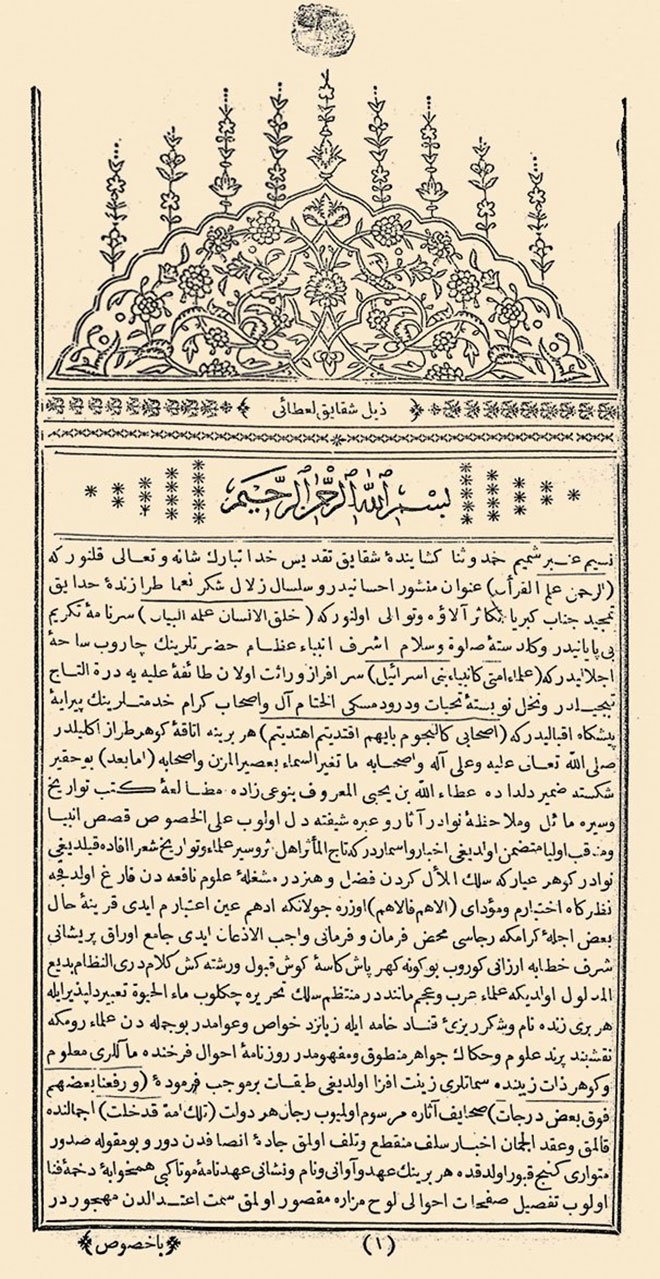 ذيل شقايق لعطائى
بسم الله الرحمن الرحيم
نسيم عنبر شميم حمد وثنا كشايندۀ شقايق تقديس خدا تبارك شانه وتعالى قلنور كه
(الرحمن علم القرأن) عنوان منشور احسانيدر و سلسال زلال شكر نعما طرازندۀ حدايق
تمجيد جناب كبريا تكاثر آلاؤه وتوالى اولنور كه (خلق الانسان علمه البيان) سرنامۀ تكريم
بى پايانيدر وكلدستۀ صلوة وسلام اشرف انبياء عظام حضرتلرينك چاروب ساحۀ
اجلاليدركه (علماء امتى كانبياء بنى اسرائيل) سرافراز وراثت اولان طائفۀ عليه يه درة التاج
تبجيلدر ونخل نو بستۀ تحيات ودرود مسكى الختام آل واصحاب كرام خدمتلرينك پيرايۀ
پيشكاه اقباليدركه (اصحابى كالنجوم بايهم اقتديتم اهتديتم) هر برينه اتاقۀ كوهر طراز اكليلدر
صلى الله تعالى عليه وعلى آله واصحابه ما تغير السماء بعصير المزن واصحابه (امابعد) بو حقير
شكسته ضمير دلداده عطاء الله بن يحيى المعروف بنوعى زاده مطالعۀ كتب تواريخ
وسيره مائل وملاحظۀ نوادر آثار و عبره شيفته دل اولوب على الخصوص قصص انبيا
ومناقب اوليا متضمن اولديغى اخبار واسمار دركه تاج المآثر اهل ثروسير علماء وتواريخ شعرا افاده قيلديغى
نوادر كوهر عيار كه سلك اللأل كردن فضل و هنر در مشغلۀ علوم نافعه دن فارغ اولدقجه
نظركاه اختيارم ومؤداى (الاهم فالاهم) اوزره جولانكه ادهم عين اعتبارم ايدى قرينۀ حال
بعض اجلۀ كرامكه رجاسى محض فرمان و فرمانى واجب الاذعان ايدى جامع اوراق پريشانى
شرف خطابه ارزانى كوروب بو كونه كهر پاش كاسۀ كوش قبول ورشته كش كلام درى النظام بديع
المدلول اولديكه علماء عرب وعجم مانند در منتظم سلك تحريره چكلوب ماء الحيوة تعبير دلپذير ايله
هر برى زنده نام وشكر ريزئ قناد خامه ايله زبانزد خواص وعوامدر بو جمله دن علماء رومكه
نقشبند پرند علوم وحكاك جواهر منطوق ومفهومدر روزنامۀ احوال فرخنده مآللرى معلوم
وكوهر ذات زيبنده سماتلرى زينت افزا اولديغى طبقات بر موجب فرمودۀ (ورفعنا بعضهم
فوق بعض درجات) صحايف آثاره مرسوم اولميوب رجال هر دولت (تلك امة قدخلت) اجمالنده
قالمق وعقد الجمان اخبار سلف منقطع وتلف اولمق جادۀ انصافدن دور و بو مقوله صدور
متوارى كنج قبور اولدقده هر برينك عهد وآوانى ونام ونشانى عهدنامۀ موتاكبى همخوابۀ دخمۀ فنا
اولوب تفصيل صفحات احوالى لوح مزاره مقصور اولمق سمت اعتدالدن مهجوردر
(١)
باخصوص